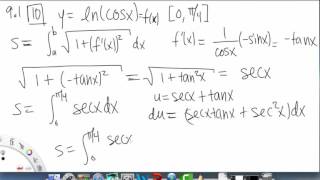 9.1 10 y = ln(cosx) = f(x) [0, π/4]
s = ∫ₐᵇ √(1 + (f'(x))²) dx f'(x) = 1/cosx (-sinx) = -tanx
√(1 + (-tanx)²) = √(1 + tan²x) = secx
s = ∫₀^(π/4) secx dx u = secx + tanx
du = (secxtanx + sec²x)dx
s = ∫₀^(π/4) secx